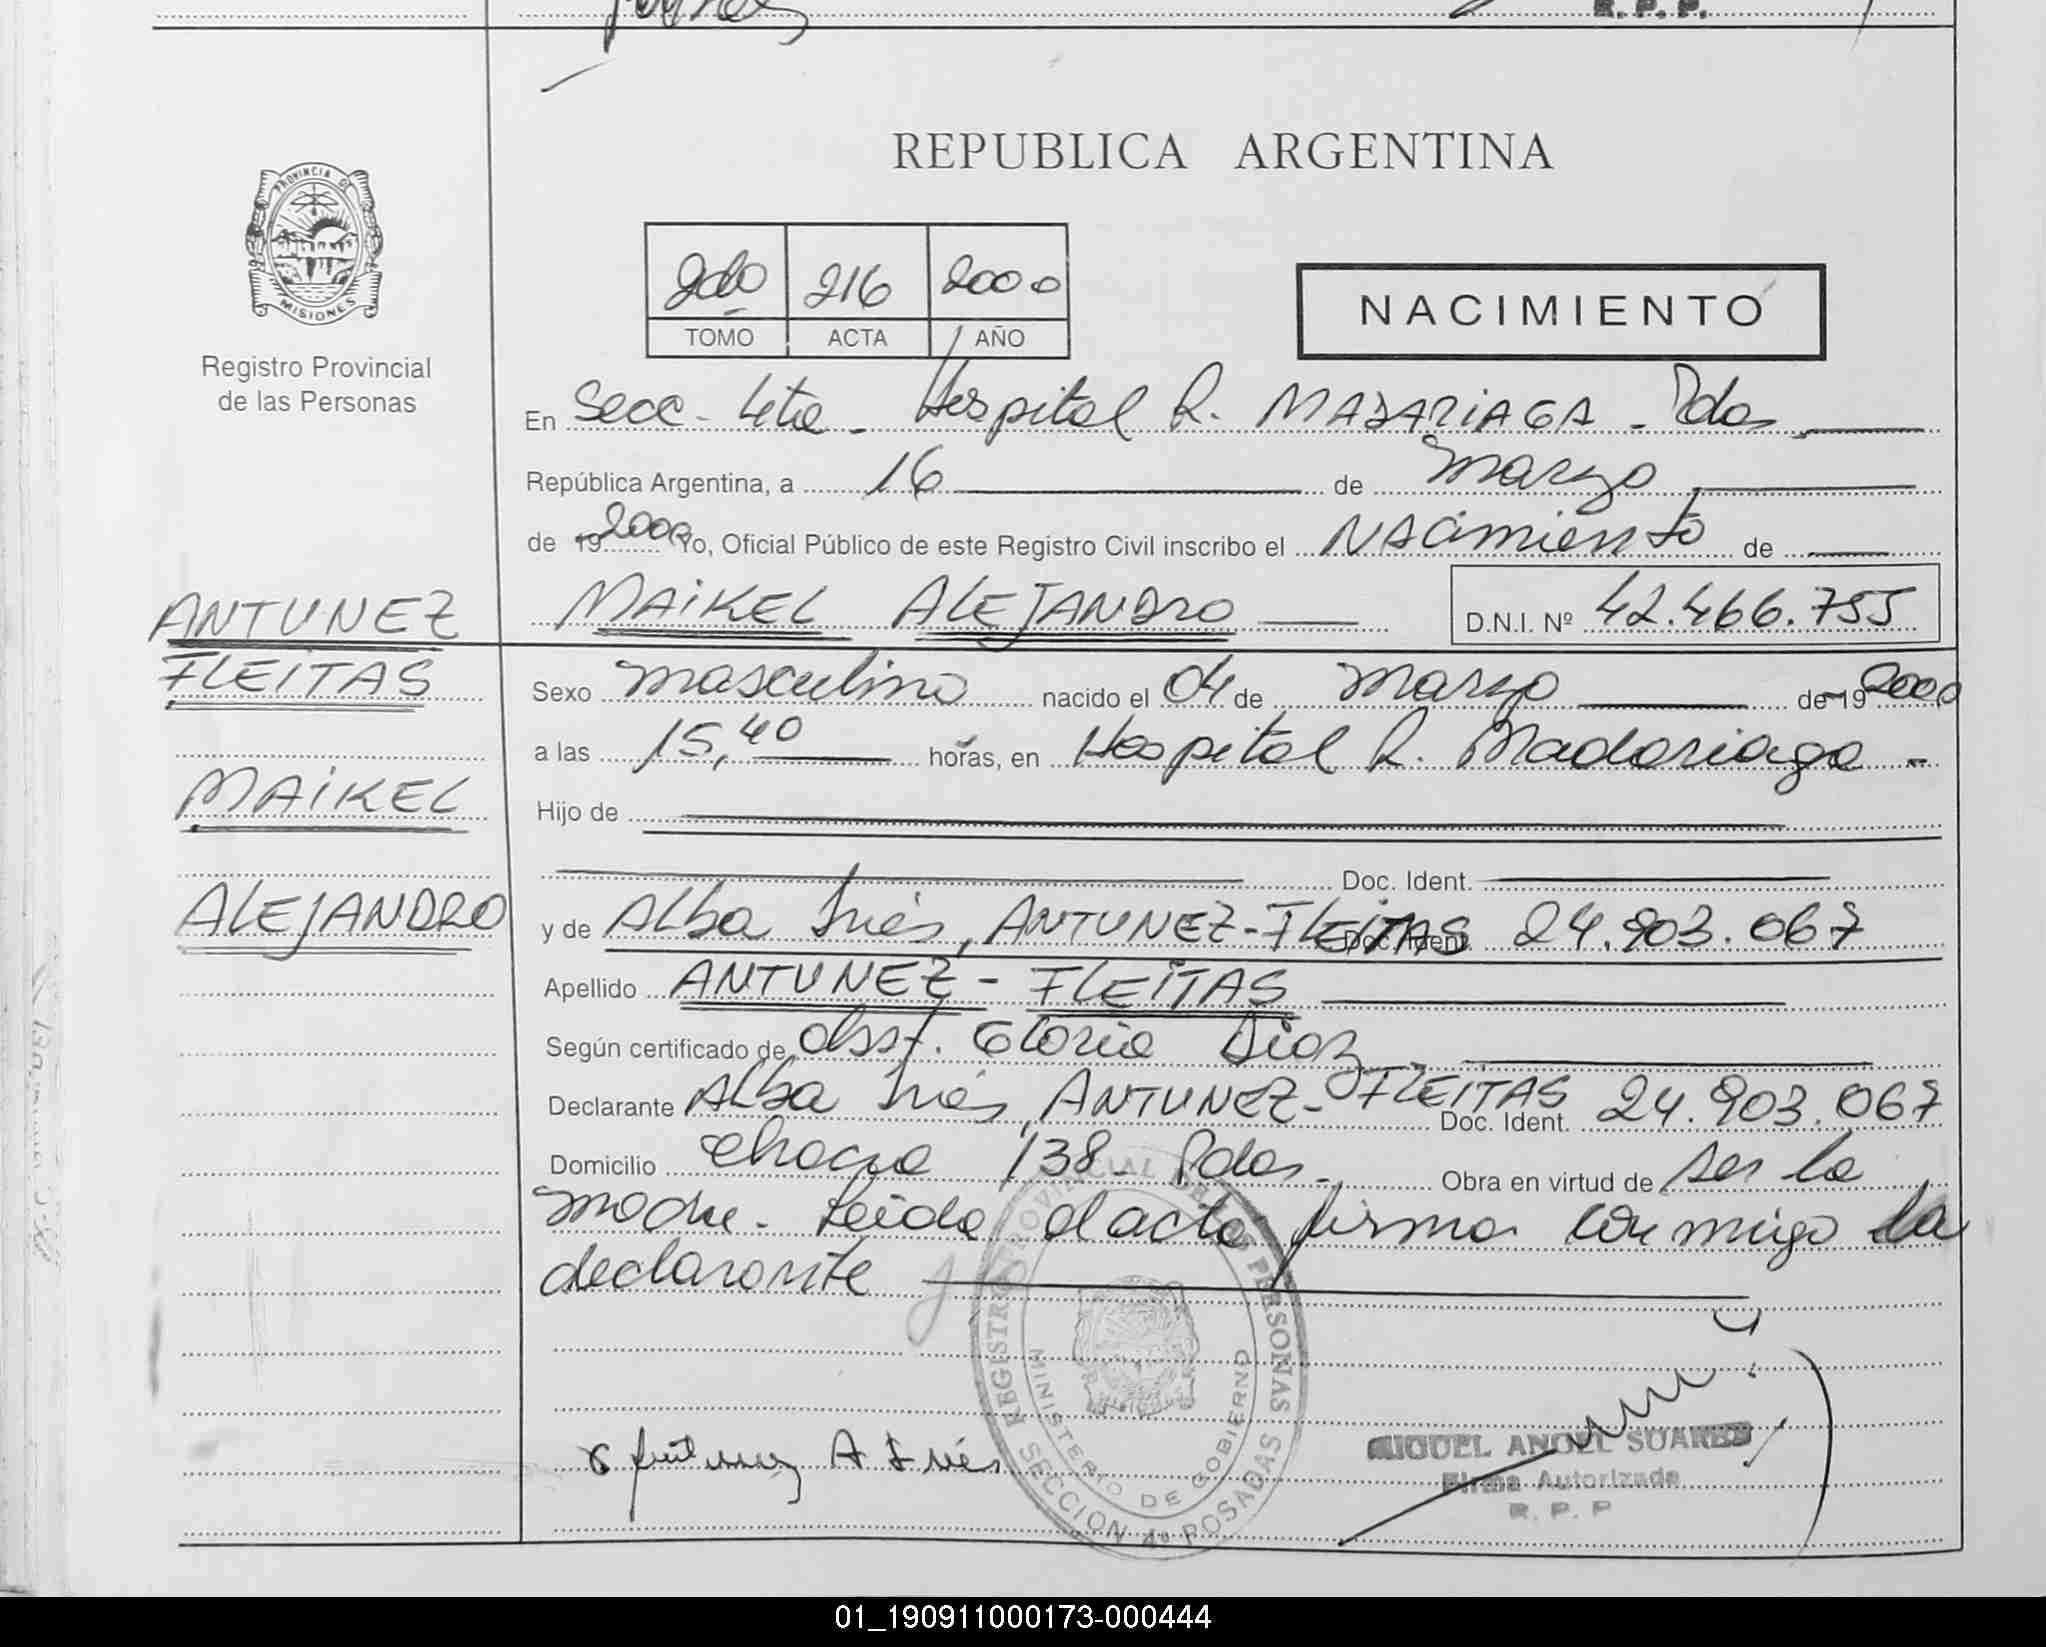 R. P. P.
REPUBLICA ARGENTINA
PROVINCIA DE
MISIONES
Registro Provincial
de las Personas
2do 216 2000
TOMO ACTA AÑO
NACIMIENTO
En Secc. 4ta - Hospital R. MADARIAGA - Pdas
República Argentina, a 16 de Marzo
de 19 2000 Yo, Oficial Público de este Registro Civil inscribo el NACimiento de
ANTUNEZ
FLEITAS
MAIKEL
ALEJANDRO
MAIKEL ALEJANDRO D.N.I. Nº 42.466.755
Sexo masculino nacido el 04 de Marzo de 19 2000
a las 15,40 horas, en Hospital R. Madariaga -
Hijo de
Doc. Ident.
y de Alba Inés, ANTUNEZ-FLEITAS Doc. Ident. 24.903.067
Apellido ANTUNEZ - FLEITAS
Según certificado de Obst. Gloria Diaz
Declarante Alba Inés, ANTUNEZ-FLEITAS Doc. Ident. 24.903.067
Domicilio Chaco 138 - Pdas - Obra en virtud de ser la
madre. Leida el acta firma conmigo la
declarante
REGISTRO PROVINCIAL DE LAS PERSONAS
MINISTERIO DE GOBIERNO
SECCION 4º POSADAS
Antunez A Inés
MIGUEL ANGEL SUAREZ
Firma Autorizada
R. P. P
01_190911000173-000444